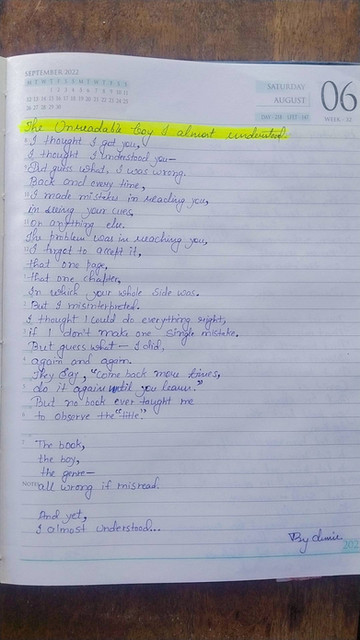 SEPTEMBER 2022
SATURDAY
AUGUST
06
The Unreadable boy I almost understood.
I thought I got you,
I thought I understood you—
But guess what, I was wrong.
Back and every time,
I made mistakes in reading you,
in seeing your cues,
or anything else.
The problem was in reaching you,
I forgot to accept it,
that one page,
that one chapter,
In which your whole side was.
But I misinterpreted.
I thought I could do everything right,
if I don't make one single mistake.
But guess what— I did,
again and again.
They say, "Come back more times,
do it again until you learn."
But no book ever taught me
to observe the "title."
The book,
the boy,
the genre—
NOTES
all wrong if misread.
And yet,
I almost understood...
By